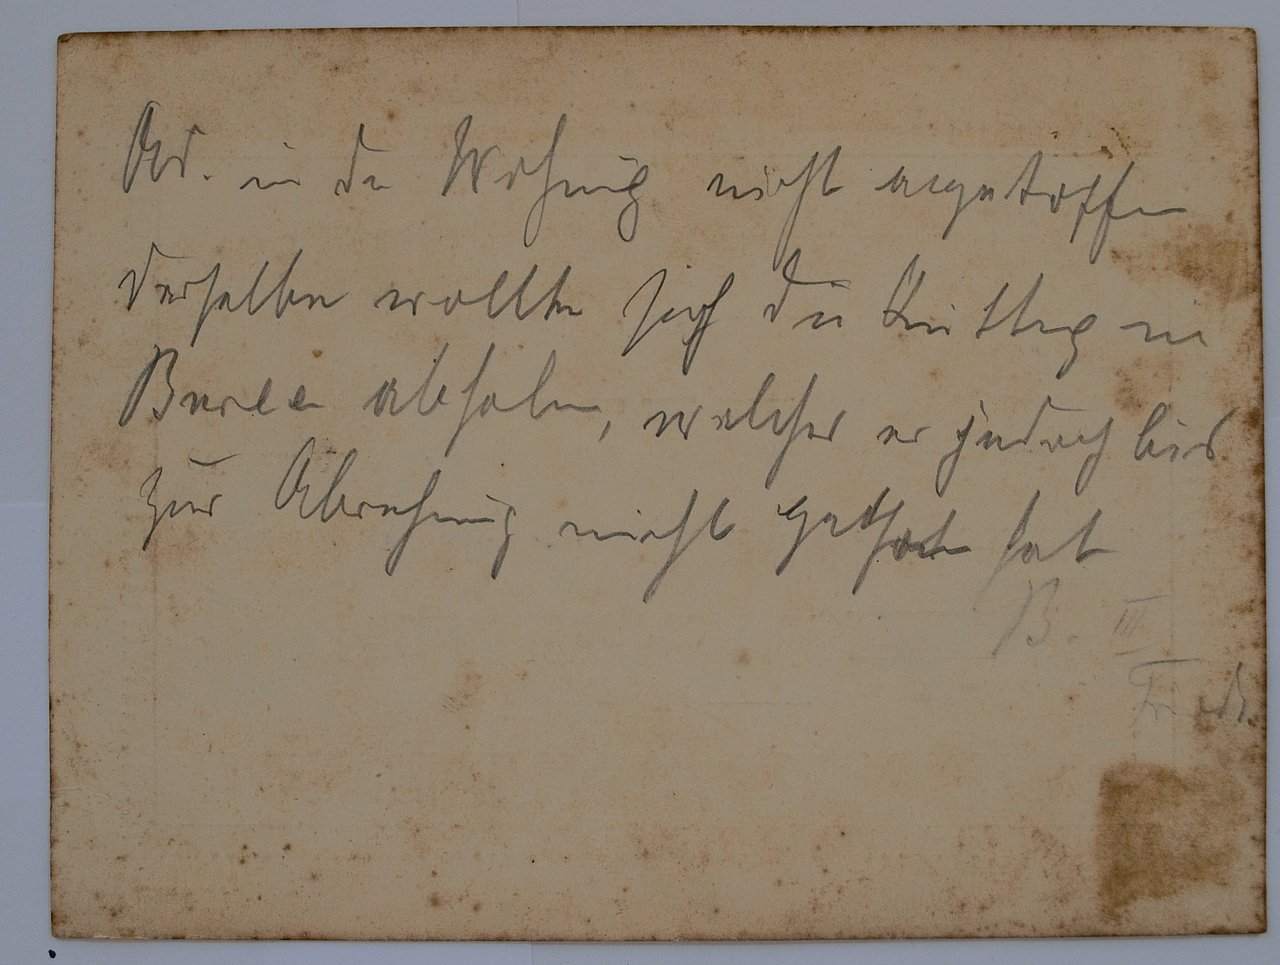 Ad. in der Wohnung nicht angetroffen
derselbe wollte sich die Quittung im
Bureau abholen, welches er jedoch bis
zur Abrechnung nicht gethan hat
B. III